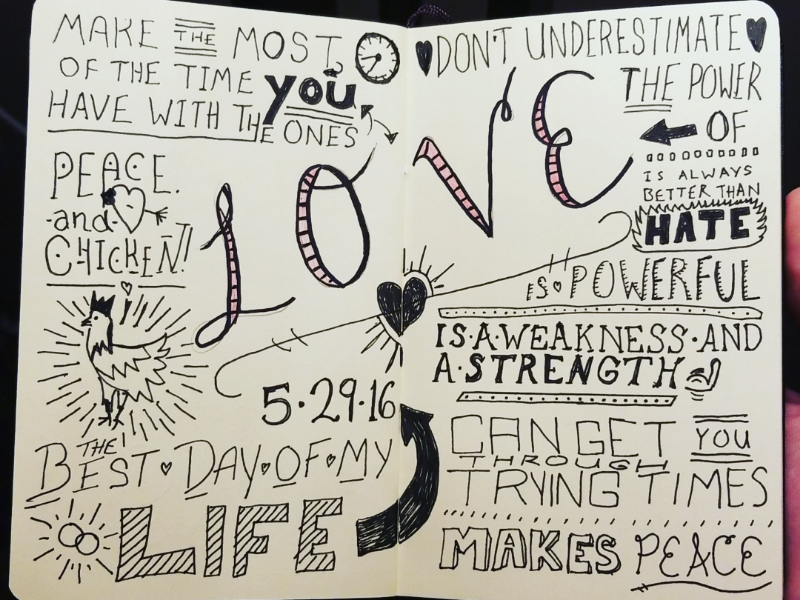 MAKE THE MOST
OF THE TIME YOU
HAVE WITH THE ONES
LOVE
PEACE.
and
CHICKEN!
5·29·16
THE
BEST DAY OF MY
LIFE
DON'T UNDERESTIMATE
THE POWER
OF
IS ALWAYS
BETTER THAN
HATE
IS POWERFUL
IS·A·WEAKNESS·AND
A·STRENGTH
CAN GET YOU
THROUGH
TRYING TIMES
MAKES PEACE